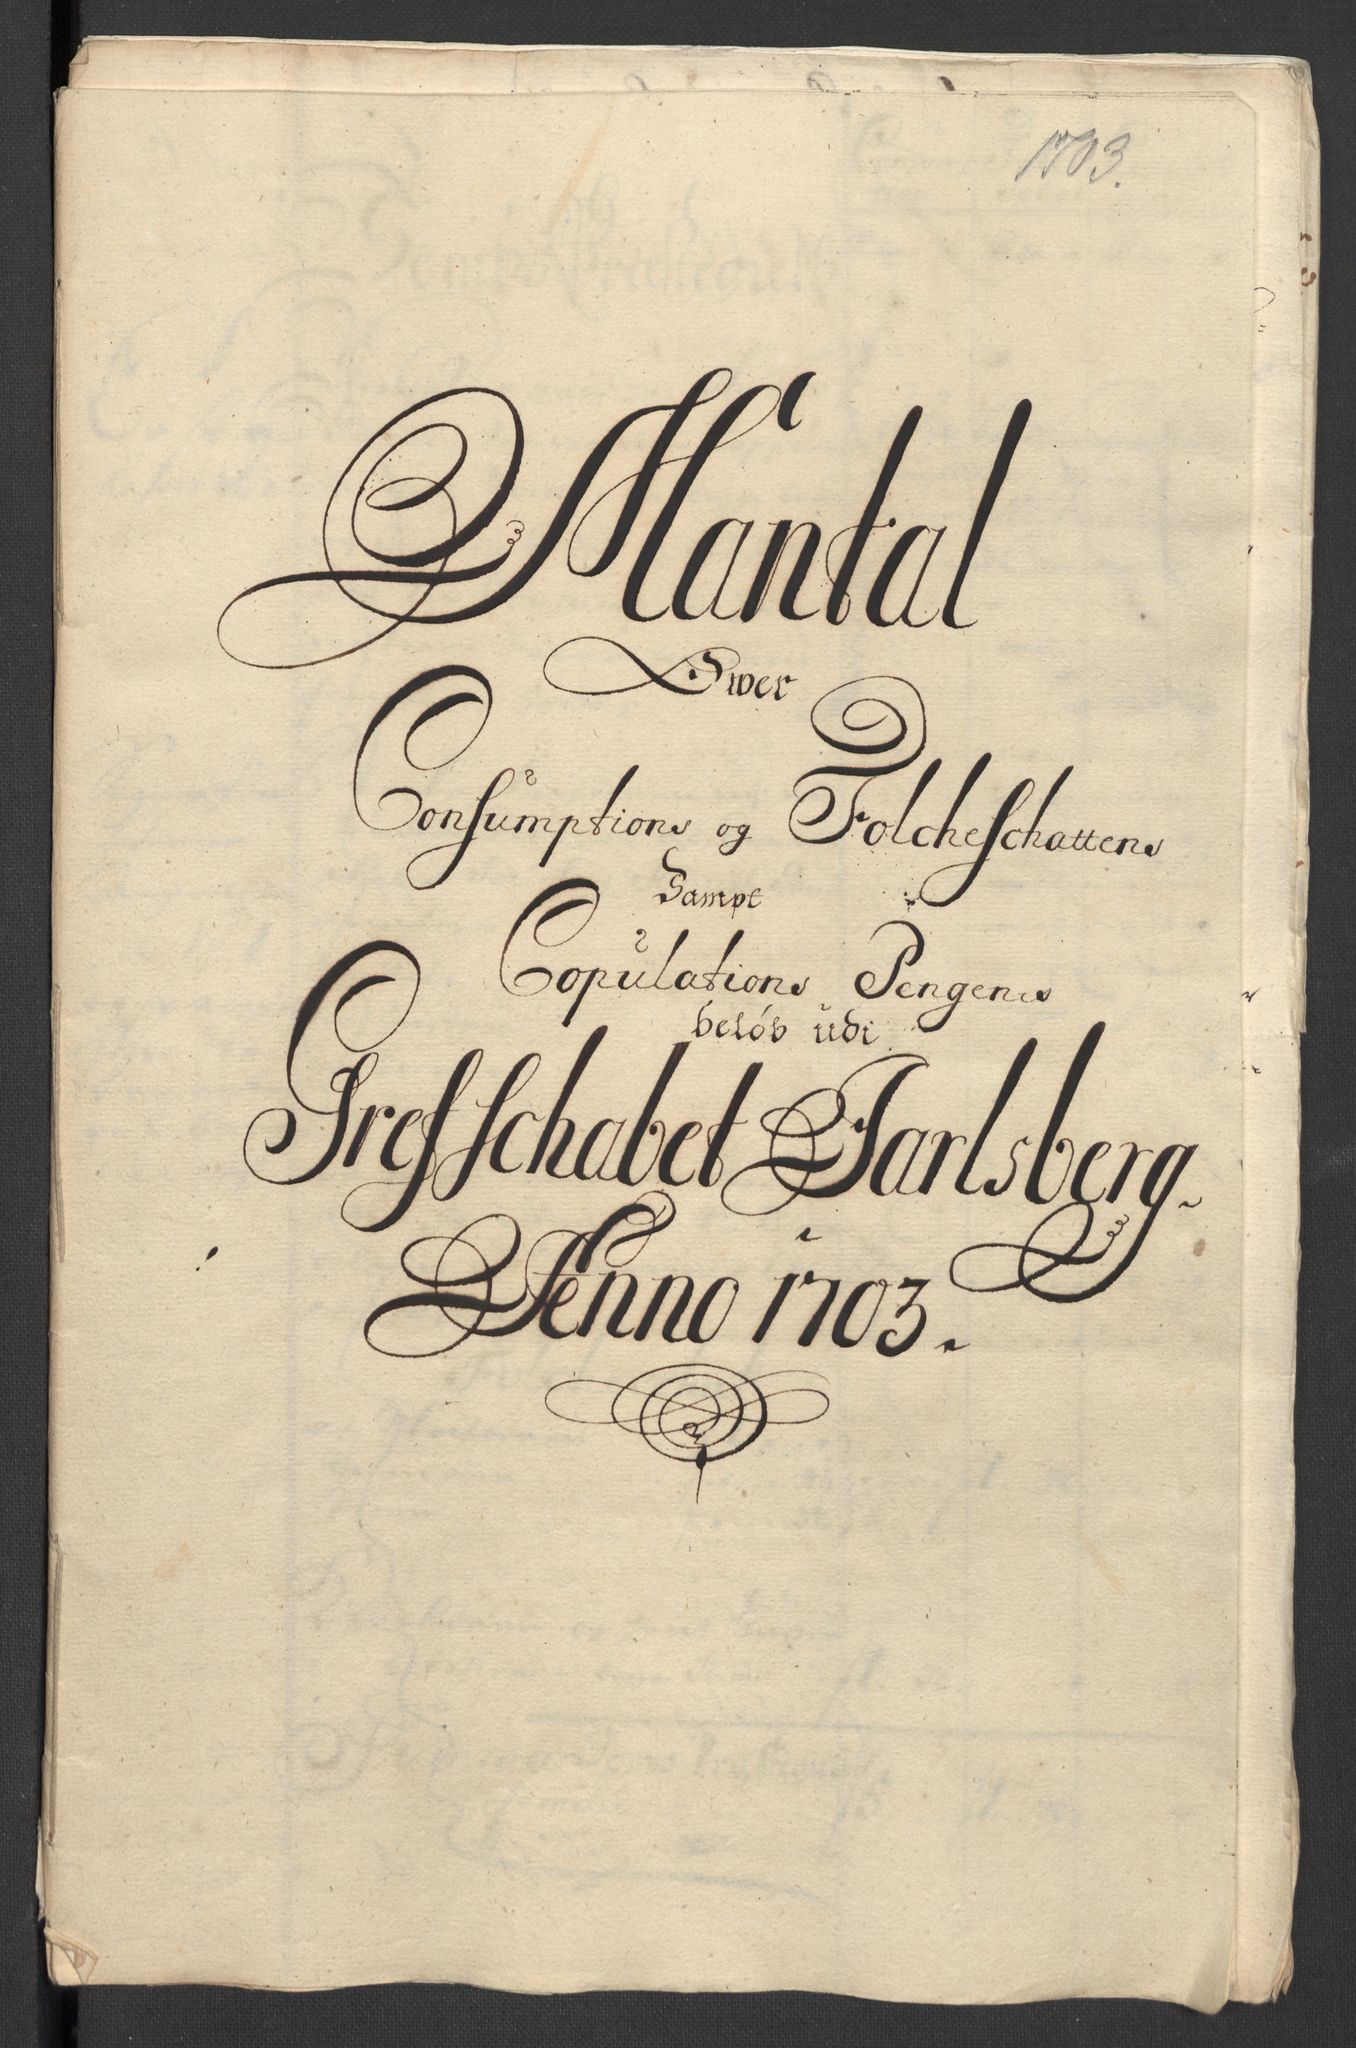 1703.
Mantal
Ower
Consumptions og Folcheschattens
Sampt
Copulations Pengenis
beløb udi
Grefschabet Jarlsberg.
Anno 1703.